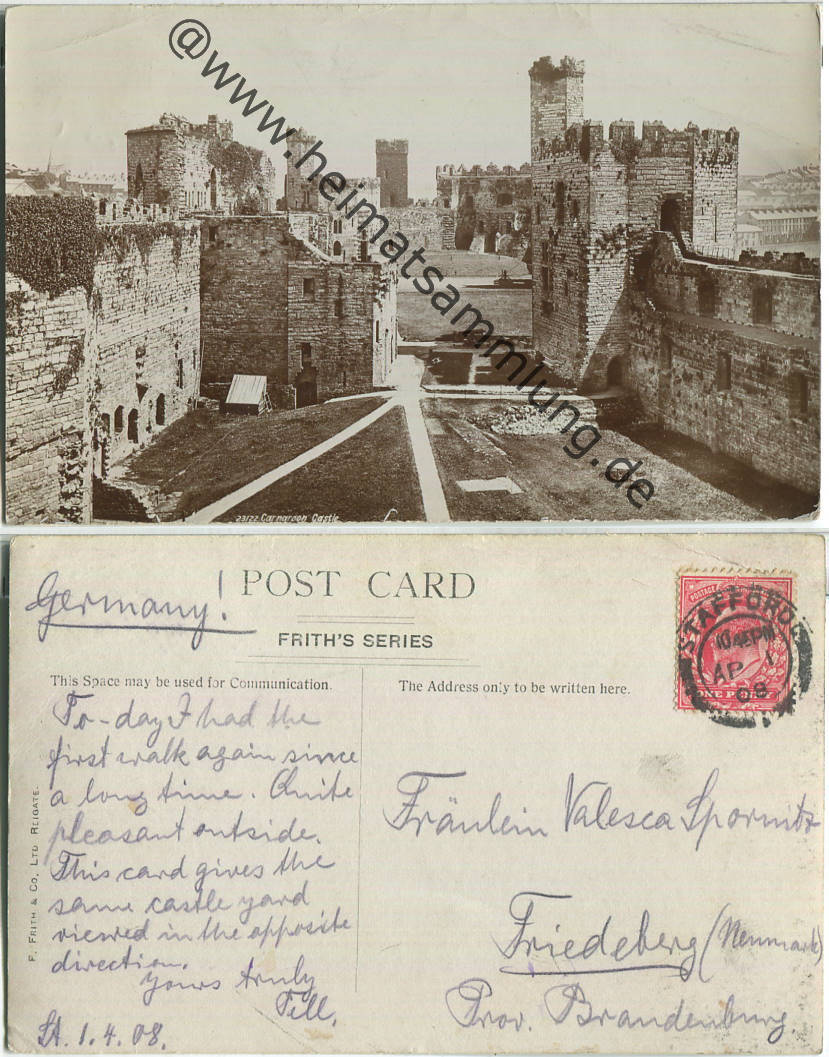 @www.heimatsammlung.de
23122. Carnarvon Castle
Germany!
POST CARD
FRITH'S SERIES
This Space may be used for Communication.
The Address only to be written here.
POSTAGE
STAFFORD
10 45 PM
AP 1
08
ONE PENNY
To-day I had the
first walk again since
a long time. Quite
pleasant outside.
This card gives the
same castle yard
viewed in the opposite
direction.
Yours truly
Till.
St. 1.4.08.
F. FRITH & CO. LTD REIGATE.
Fräulein Valesca Spornitz
Friedeberg (Neumark)
Prov. Brandenburg.